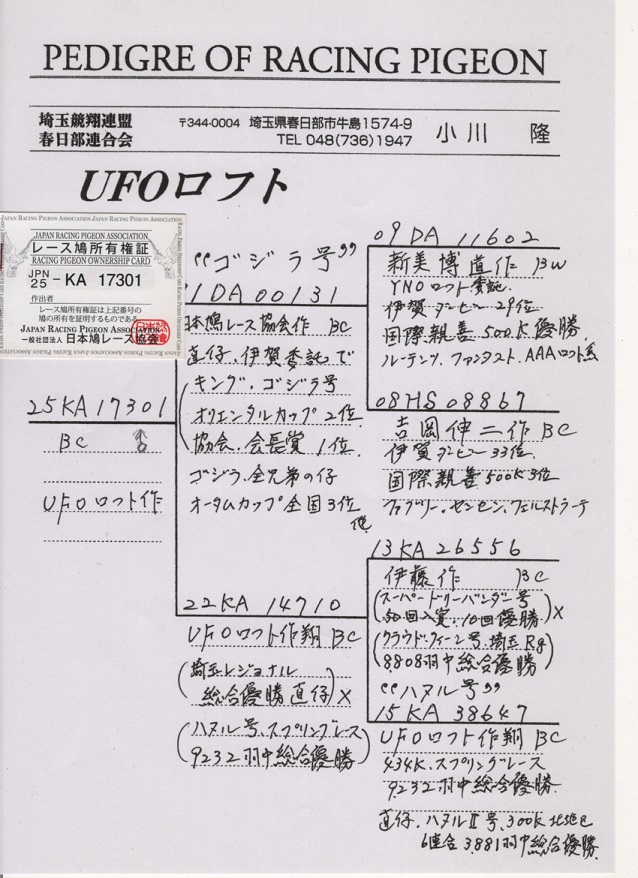 PEDIGRE OF RACING PIGEON
埼玉競翔連盟
春日部連合会
〒344-0004 埼玉県春日部市牛島1574-9
TEL 048(736)1947
小川 隆
UFOロフト
JAPAN RACING PIGEON ASSOCIATION
レース鳩所有権証
RACING PIGEON OWNERSHIP CARD
JPN
25 - KA 17301
作出者
レース鳩所有権証は上記番号の
鳩の所有を証明するものである
JAPAN RACING PIGEON ASSOCIATION
一般社団法人 日本鳩レース協会
25KA17301
BC ♂
UFOロフト作
"ゴジラ号"
11DA00131
日本鳩レース協会作 BC
直仔、伊賀委託で
キング、ゴジラ号
オリエンタルカップ2位
協会、会長賞1位
ゴジラ、全兄弟の仔
オータムカップ全国3位
他
22KA 14710
UFOロフト作翔 BC
(埼玉レジョナル
総合優勝直仔)X
(ハヌル号、スプリングレース
9232羽中総合優勝)
09 DA 11602
新美博道作 BW
YNOロフト委託
伊賀ダービー29位
国際親善500K優勝
ルーテンツ、ファンタスト、AAAロフト系
08HS 08867
吉岡伸二作 BC
伊賀ダービー33位
国際親善500K3位
ファブリー、ゼンセン、フェルストラーテ
13KA 26556
伊藤作 BC
(スーパードリーバンダー号
50回入賞、10回優勝)X
(クラウドクィーン号、埼玉Rg
8808羽中総合優勝)
"ハヌル号"
15KA 38647
UFOロフト作翔 BC
434K、スプリングレース
9232羽中総合優勝
直仔、ハヌルⅡ号、300K地区
6連合3,881羽中総合優勝